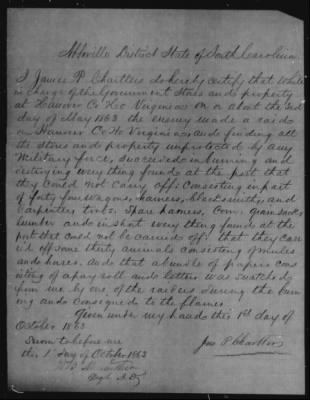 Abbeville District State of South Carolina
I James P. Charlters do hereby certify that while
in charge of the Government Stores and property
at Hanover Co Ho Virginia on or about the 3rd
day of May 1863 the enemy made a raid
on Hanover Co Ho Virginia and finding all
the stores and property unprotected by any
Military force, succeeded in burning and
destroying everything found at the post that
they could not Carry off: Consisting in part
of forty four wagons, harness, blacksmiths, and
Carpenters tools. Spare harness, Corn, Grain sacks
lumber and in short everything found at the
post that could not be carried off: that they carr-
ied off some thirty animals consisting of mules
and horses. And that a bundle of papers cons
isting of a pay roll and letters was snatched
from me by one of the raiders during the burn
ing and consigned to the flames
Given under my hand this 1st day of
October 1863
Sworn to before me
this 1st day of October 1863
Jas P Charlters